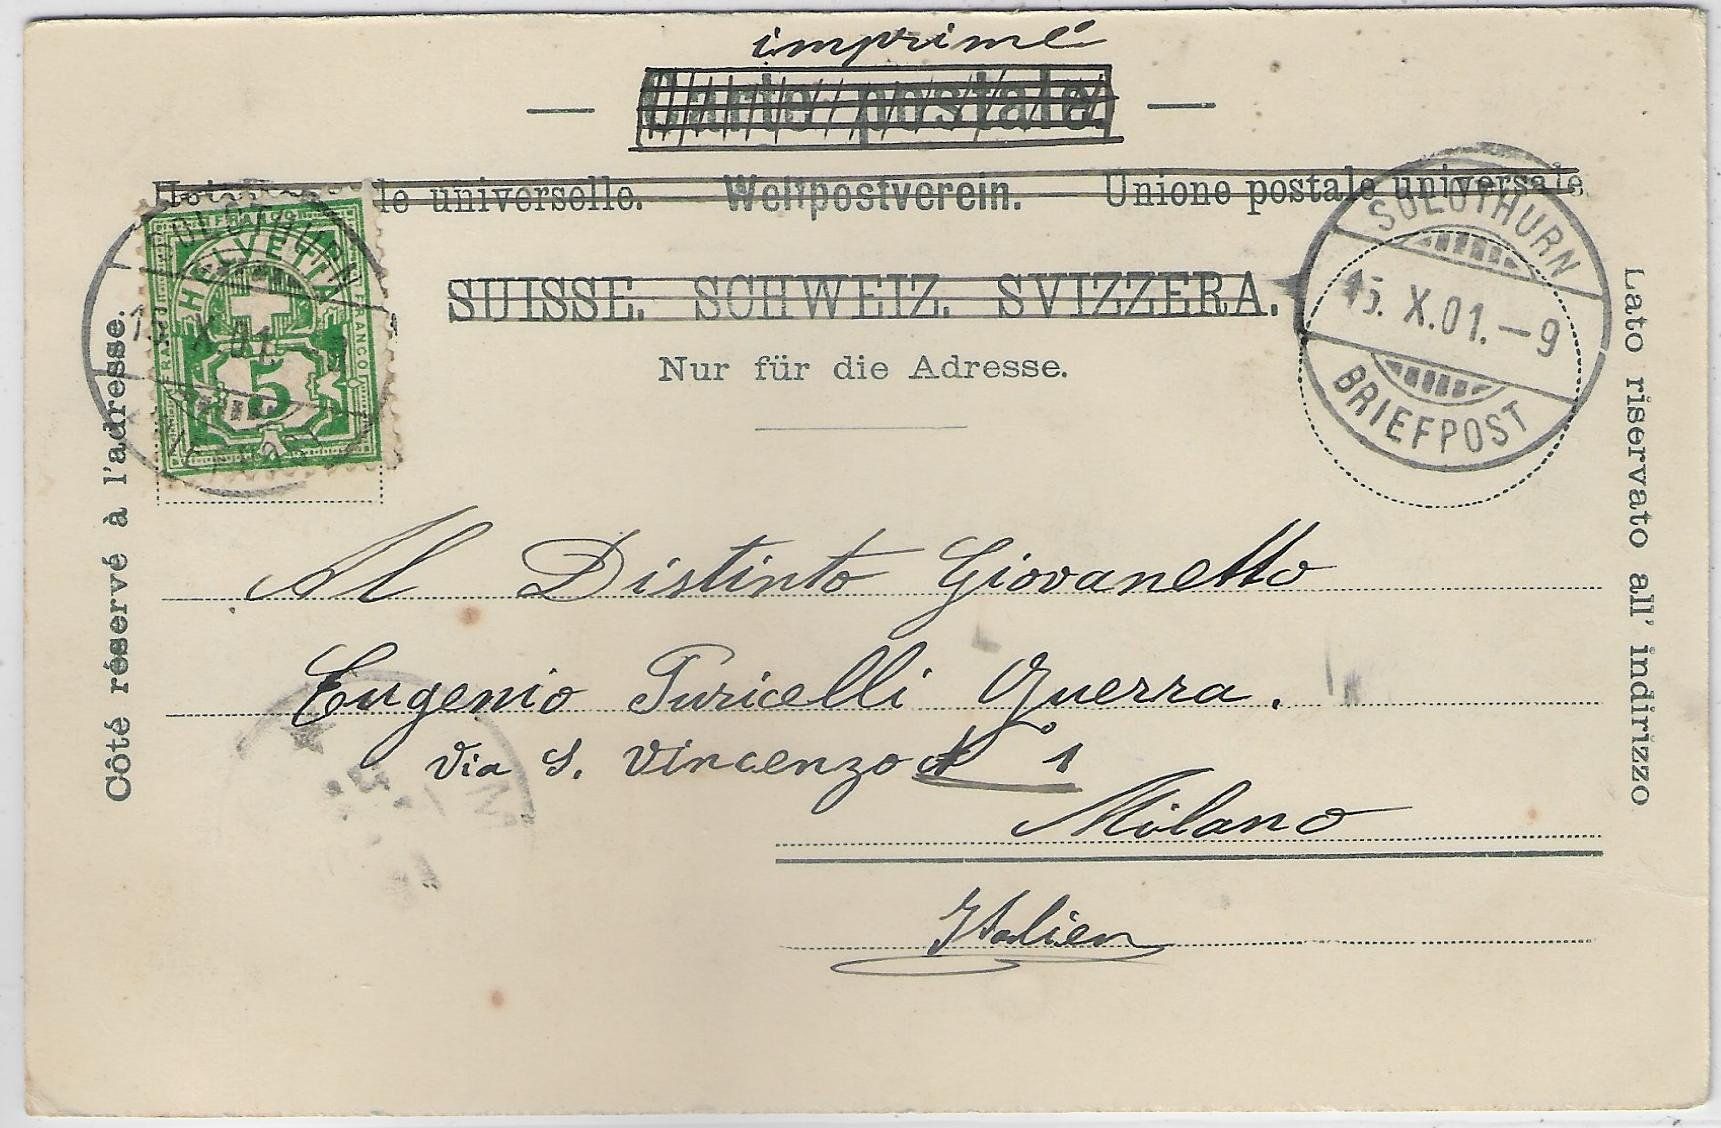 imprimé
Carte postale
le universelle. Weltpostverein. Unione postale universale
SUISSE. SCHWEIZ. SVIZZERA.
Nur für die Adresse.
HELVETIA
FRANCO
5
SOLOTHURN
15. X.01.
SOLOTHURN
15. X.01.-9
BRIEFPOST
Côté réservé à l'adresse.
Lato riservato all' indirizzo
Al Distinto Giovanetto
Eugenio Puricelli Guerra.
Via S. Vincenzo N° 1
Milano
Italien